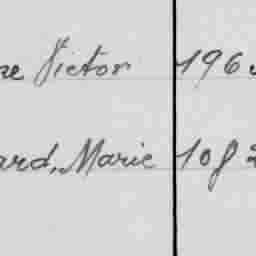 Victor 196
ard, Marie 108